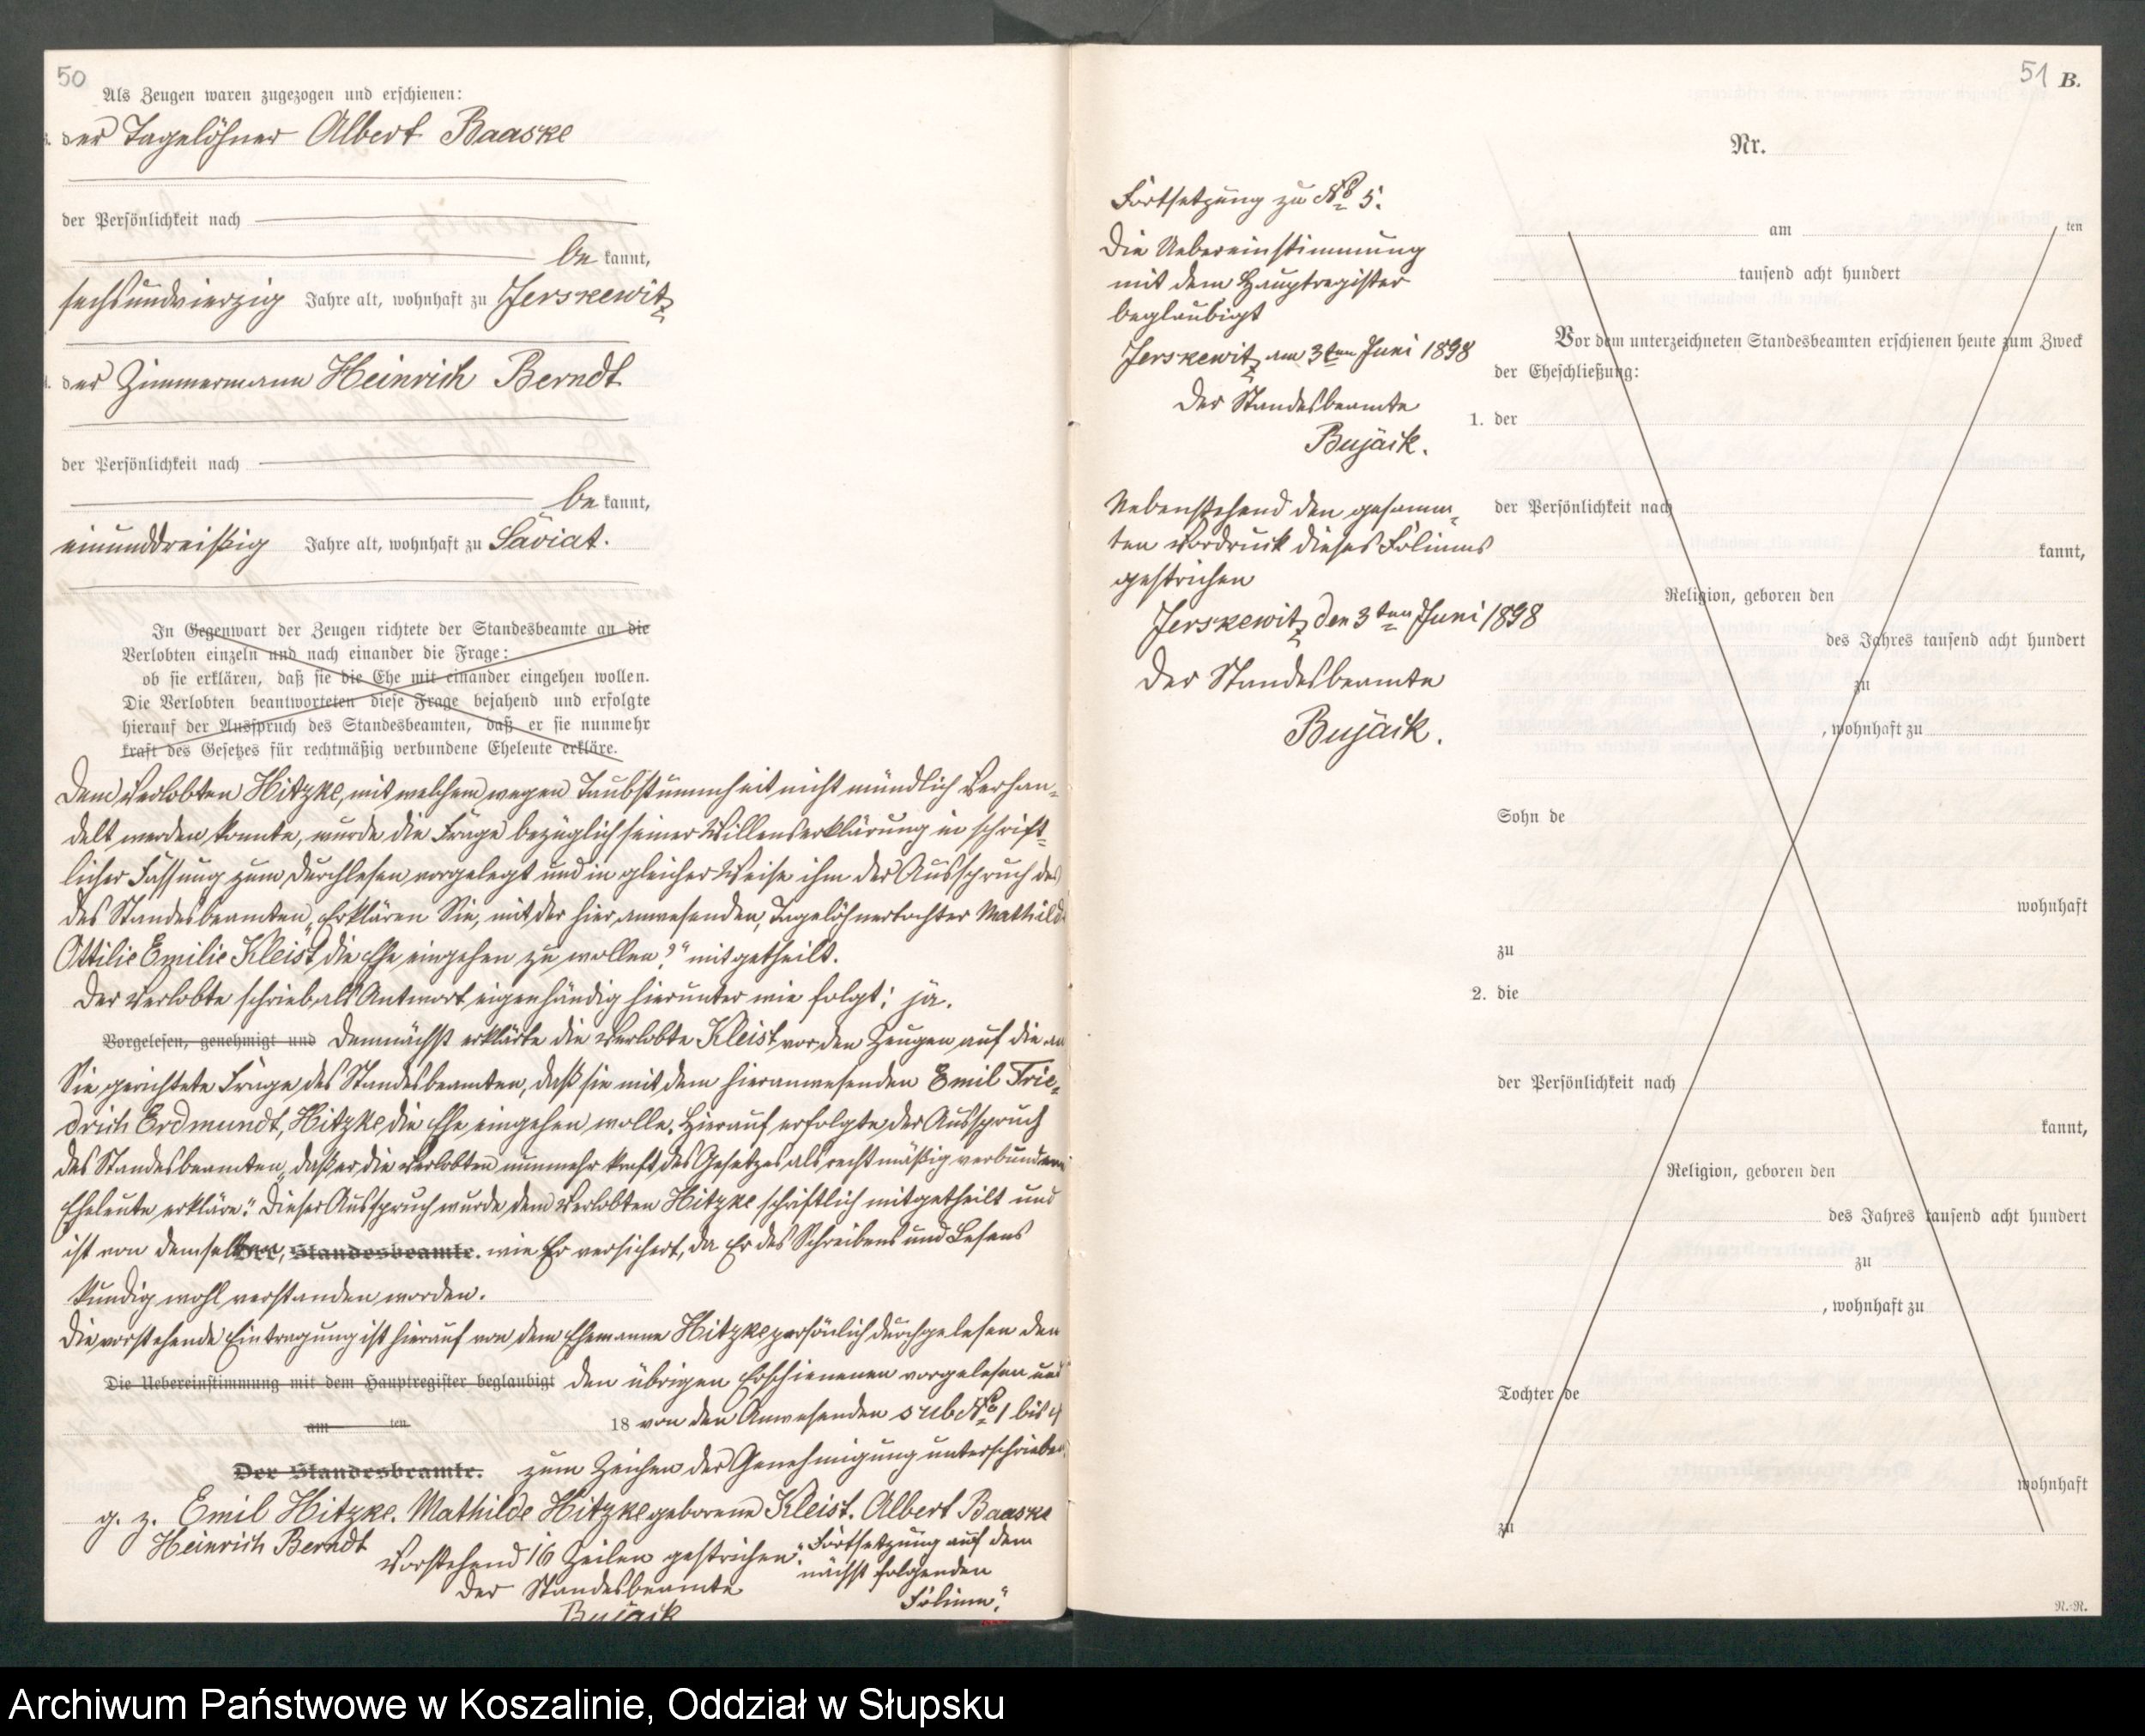 50
Als Zeugen waren zugezogen und erschienen:
der Tagelöhner Albert Baaske
der Persönlichkeit nach
be kannt,
sechsundvierzig Jahre alt, wohnhaft zu Jerskewitz
der Zimmermann Heinrich Berndt
der Persönlichkeit nach
be kannt,
einunddreißig Jahre alt, wohnhaft zu Saviat.
In Gegenwart der Zeugen richtete der Standesbeamte an die
Verlobten einzeln und nach einander die Frage:
ob sie erklären, daß sie die Ehe mit einander eingehen wollen.
Die Verlobten beantworteten diese Frage bejahend und erfolgte
hierauf der Ausspruch des Standesbeamten, daß er sie nunmehr
kraft des Gesetzes für rechtmäßig verbundene Eheleute erkläre.
Dem Verlobten Hitzke, mit welchem wegen Taubstummheit nicht mündlich verhan-
delt werden konnte, wurde die Frage bezüglich seiner Willenserklärung in schrift-
licher Fassung zum Durchlesen vorgelegt und in gleicher Weise ihm der Ausspruch des
des Standesbeamten „Erklären Sie, mit der hier anwesenden, Tagelöhnertochter Mathilde
Ottilie Emilie Kleist die Ehe eingehen zu wollen?“ mitgetheilt.
Der Verlobte schrieb als Antwort eigenhändig hierunter wie folgt: ja.
Vorgelesen, genehmigt und Demnächst erklärte die Verlobte Kleist vor den Zeugen auf die an
Sie gerichtete Frage des Standesbeamten, daß sie mit dem hieranwesenden Emil Frie-
drich Erdmundt, Hitzke die Ehe eingehen wolle. Hierauf erfolgte der Ausspruch
des Standesbeamten „daß er die Verlobten nunmehr kraft des Gesetzes als rechtmäßig verbundene
Eheleute erkläre.“ Dieser Ausspruch wurde dem Verlobten Hitzke schriftlich mitgetheilt und
ist von demselben, Der Standesbeamte. wie Er versichert, da Er des Schreibens und Lesens
kundig wohl verstanden worden.
Die vorstehende Eintragung ist hierauf von dem Ehemanne Hitzke persönlich durchgelesen den
Die Uebereinstimmung mit dem Hauptregister beglaubigt den übrigen Erschienenen vorgelesen und
am ten 18 von den Anwesenden sub No 1 bis 4
Der Standesbeamte. zum Zeichen der Genehmigung unterschrieben
g. z. Emil Hitzke. Mathilde Hitzke geborene Kleist. Albert Baaske
Heinrich Berndt
Vorstehend 16 Zeilen gestrichen.
„Fortsetzung auf dem
nächst folgenden
Folium“
Der Standesbeamte
Bujack
51 B.
Fortsetzung zu No 5.
Die Uebereinstimmung
mit dem Hauptregister
beglaubigt
Jerskewitz am 3ten Juni 1898
Der Standesbeamte
Bujack.
Nebenstehend den gesamm-
ten Vordruck dieses Foliums
gestrichen
Jerskewitz den 3ten Juni 1898
Der Standesbeamte
Bujack.
Nr.
am ten
tausend acht hundert
Vor dem unterzeichneten Standesbeamten erschienen heute zum Zweck
der Eheschließung:
1. der
der Persönlichkeit nach
kannt,
Religion, geboren den
des Jahres tausend acht hundert
zu
, wohnhaft zu
Sohn de
wohnhaft
zu
2. die
der Persönlichkeit nach
kannt,
Religion, geboren den
des Jahres tausend acht hundert
zu
, wohnhaft zu
Tochter de
wohnhaft
zu
Archiwum Państwowe w Koszalinie, Oddział w Słupsku